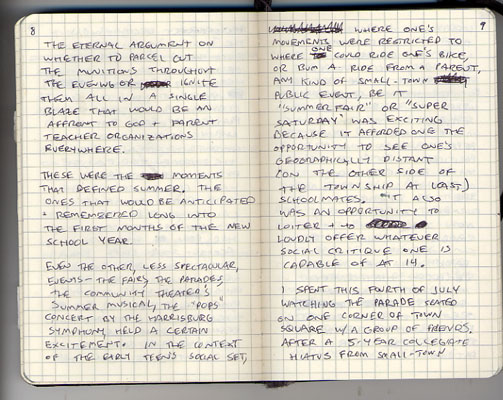 8
THE ETERNAL ARGUMENT ON
WHETHER TO PARCEL OUT
THE MUNITIONS THROUGHOUT
THE EVENING OR IGNITE
THEM ALL IN A SINGLE
BLAZE THAT WOULD BE AN
AFFRONT TO GOD + PARENT
TEACHER ORGANIZATIONS
EVERYWHERE.
THESE WERE THE MOMENTS
THAT DEFINED SUMMER. THE
ONES THAT WOULD BE ANTICIPATED
+ REMEMBERED LONG INTO
THE FIRST MONTHS OF THE NEW
SCHOOL YEAR.
EVEN THE OTHER, LESS SPECTACULAR,
EVENTS – THE FAIRS, THE PARADES,
THE COMMUNITY THEATER'S
SUMMER MUSICAL, THE "POPS"
CONCERT BY THE HARRISBURG
SYMPHONY, HELD A CERTAIN
EXCITEMENT. IN THE CONTEXT
OF THE EARLY TEEN'S SOCIAL SET,
9
WHERE ONE'S
MOVEMENTS WERE RESTRICTED TO
WHERE ONE COULD RIDE ONE'S BIKE,
OR BUM A RIDE FROM A PARENT,
ANY KIND OF SMALL-TOWN
PUBLIC EVENT, BE IT
"SUMMER FAIR" OR "SUPER
SATURDAY" WAS EXCITING
BECAUSE IT AFFORDED ONE THE
OPPORTUNITY TO SEE ONE'S
GEOGRAPHICALLY DISTANT
(ON THE OTHER SIDE OF
THE TOWNSHIP AT LEAST)
SCHOOLMATES. IT ALSO
WAS AN OPPORTUNITY TO
LOITER + TO
LOUDLY OFFER WHATEVER
SOCIAL CRITIQUE ONE IS
CAPABLE OF AT 14.
I SPENT THIS FOURTH OF JULY
WATCHING THE PARADE SEATED
ON ONE CORNER OF TOWN
SQUARE W/ A GROUP OF FRIENDS.
AFTER A 5-YEAR COLLEGIATE
HIATUS FROM SMALL-TOWN